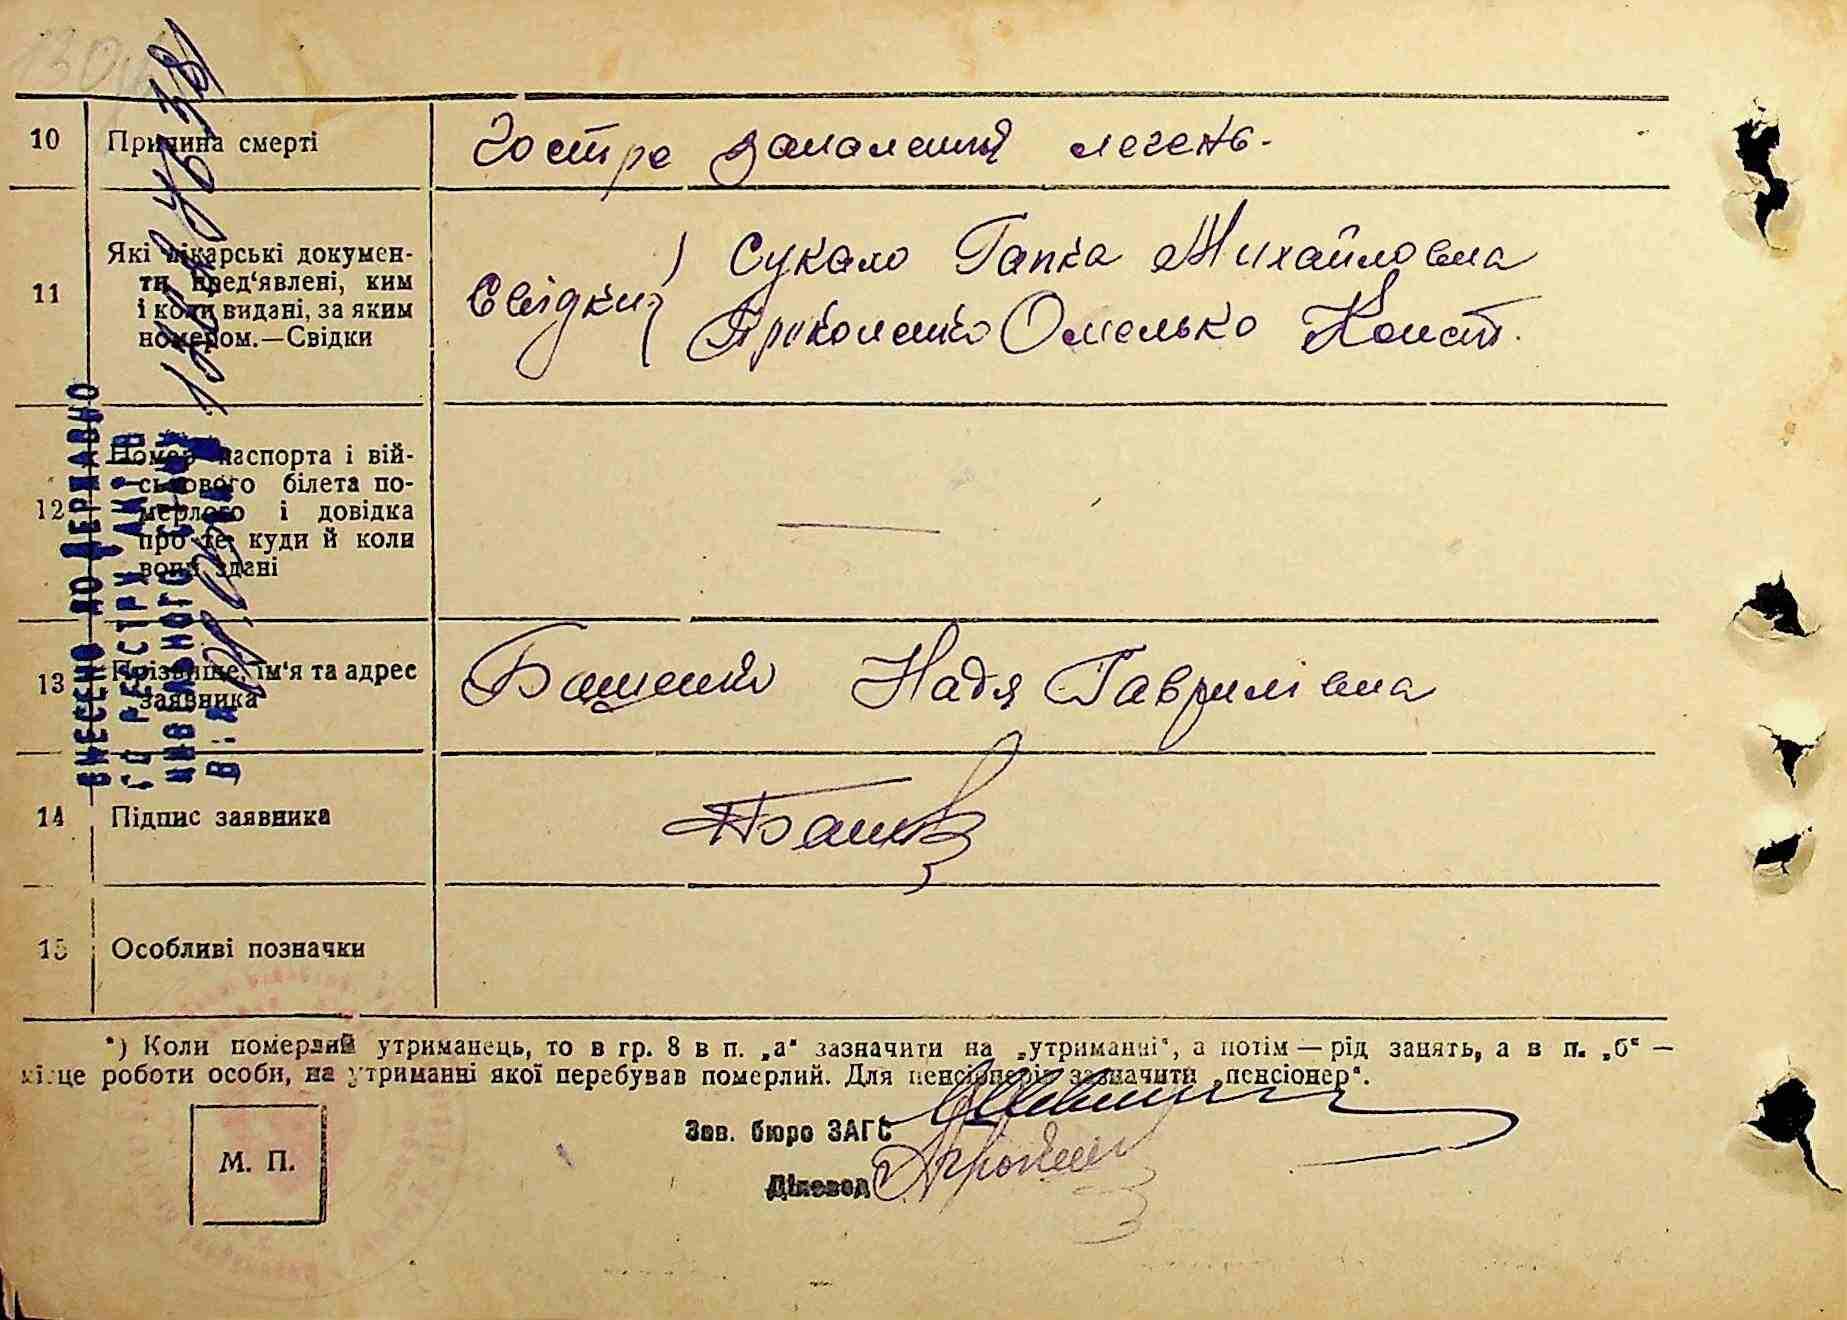 10 Причина смерті Гостре запалення легень.
11 Які лікарські докумен-
ти пред‘явлені, ким
і коли видані, за яким
номером.—Свідки
Свідки) Сукало Гапка Михайловна
Омелько Конст.
12 Номер паспорта і вій-
ськового білета по-
мерлого і довідка
про те куди й коли
вони здані
—
13 Прізвище, ім‘я та адрес
заявника
Надя Гаврилівна
14 Підпис заявника
15 Особливі позначки
*) Коли померлий утриманець, то в гр. 8 в п. „а“ зазначити на „утриманні“, а потім — рід занять, а в п. „б“ —
місце роботи особи, на утриманні якої перебував померлий. Для пенсіонерів зазначити „пенсіонер“.
Зав. бюро ЗАГС
Діловод
М. П.
ВНЕСЕНО ДО ДЕРЖАВНО
ГО РЕЄСТРУ АКТІВ
ЦИВІЛЬНОГО СТАНУ